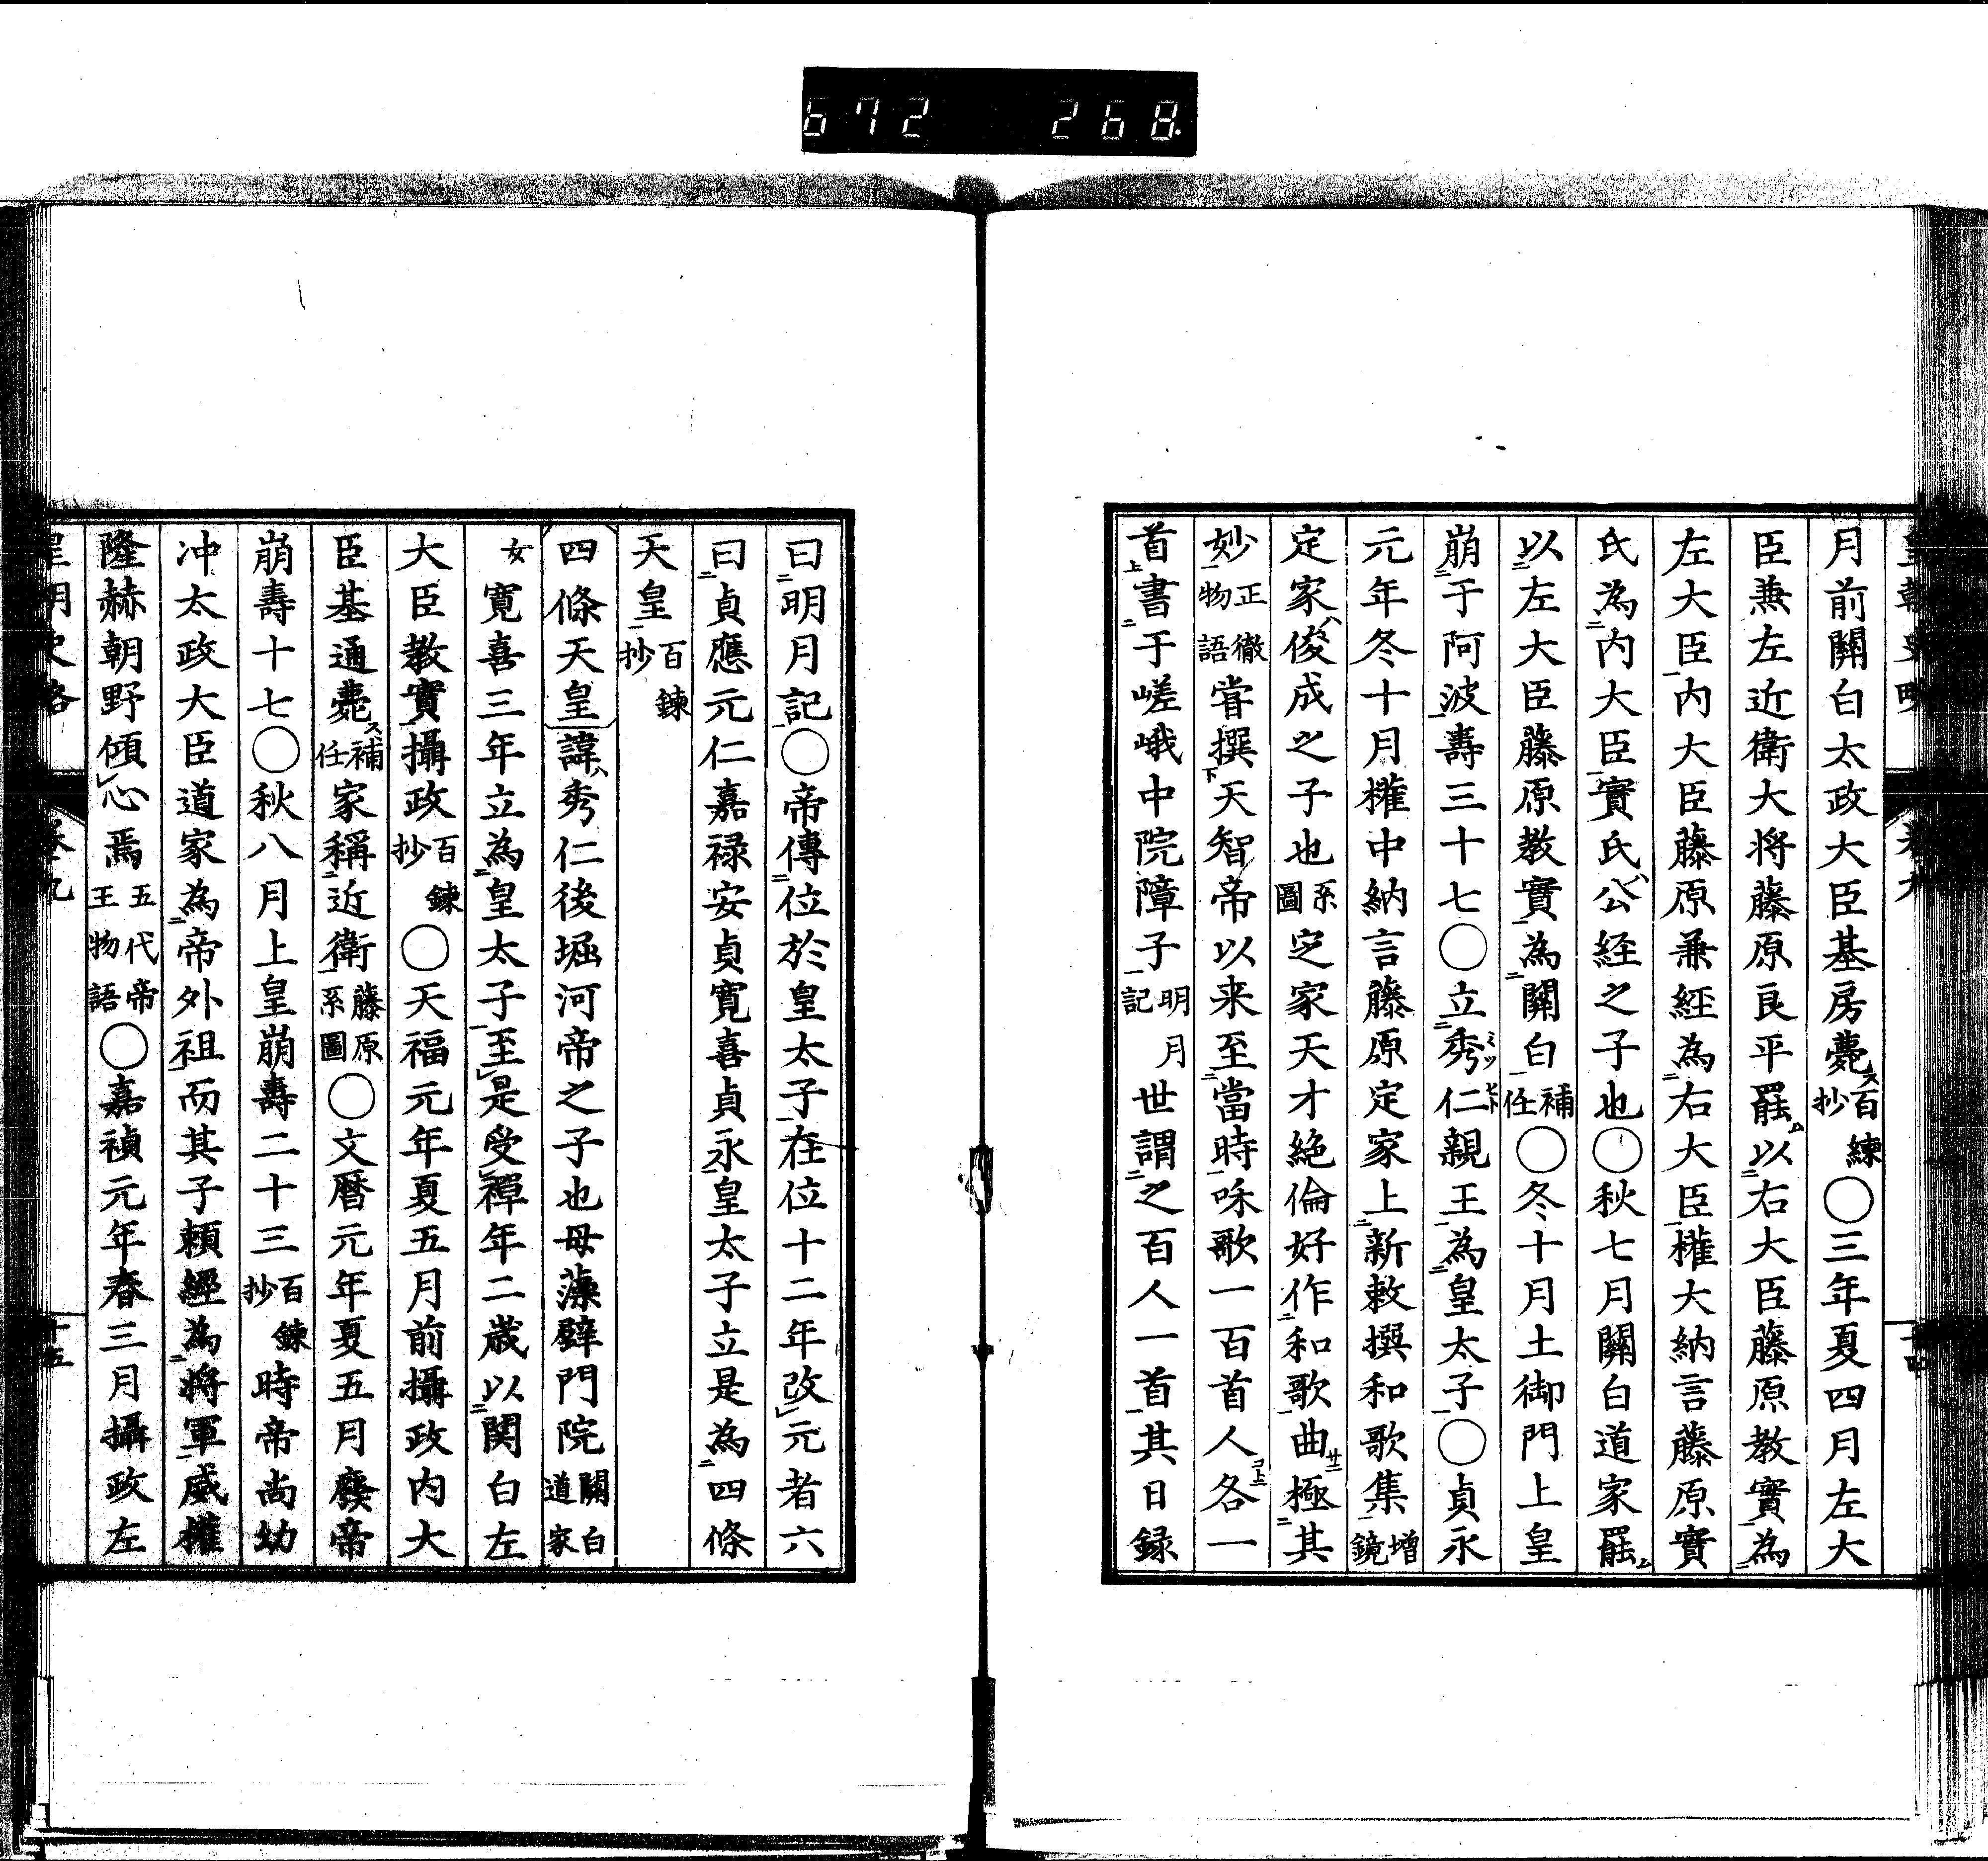 672 268.
月前關白太政大臣基房薨百練抄○三年夏四月左大
臣兼左近衛大将藤原良平罷以右大臣藤原教實為
左大臣内大臣藤原兼經為右大臣權大納言藤原實
氏為内大臣實氏公経之子也○秋七月關白道家罷
以左大臣藤原教實為關白補任○冬十月土御門上皇
崩于阿波壽三十七○立秀仁親王為皇太子○貞永
元年冬十月權中納言藤原定家上新敕撰和歌集增鏡
定家俊成之子也系圖定家天才絶倫好作和歌曲極其
妙正徹物語嘗撰天智帝以来至當時咏歌一百首人各一
首書于嵯峨中院障子明月記世謂之百人一首其日録
曰明月記○帝傳位於皇太子在位十二年改元者六
曰貞應元仁嘉禄安貞寛喜貞永皇太子立是為四條
天皇百鍊抄
四條天皇諱秀仁後堀河帝之子也母藻壁門院關白道家
女寛喜三年立為皇太子至是受禪年二歳以関白左
大臣教實攝政百鍊抄○天福元年夏五月前攝政内大
臣基通薨補任家稱近衛藤原系圖○文暦元年夏五月廢帝
崩壽十七○秋八月上皇崩壽二十三百鍊抄時帝尚幼
冲太政大臣道家為帝外祖而其子頼經為将軍威權
隆赫朝野傾心焉五代帝王物語○嘉禎元年春三月攝政左